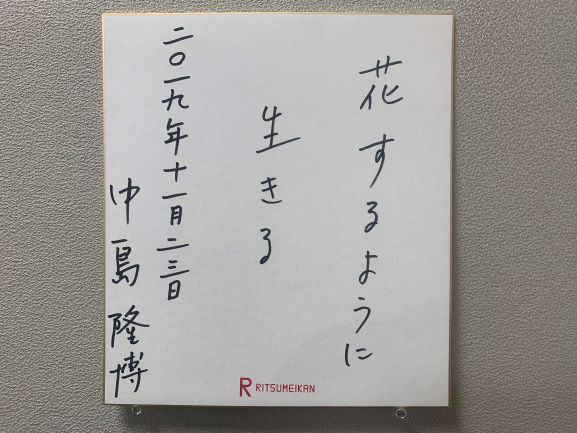 花するように
生きる
二〇一九年十一月二三日
中島隆博
R RITSUMEIKAN